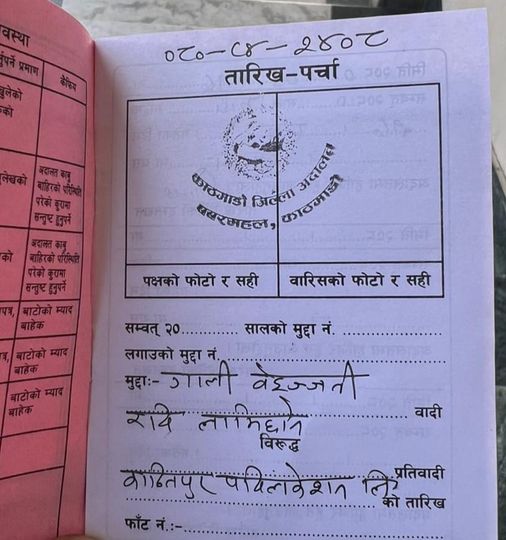 वस्था
नुंपर्ने प्रमाण
कैफियत
अदालत काबु
बाहिरको परिस्थिति
परेको कुरामा
सन्तुष्ट हुनुपर्ने
अदालत काबु
बाहिरको परिस्थिति
परेको कुरामा
सन्तुष्ट हुनुपर्ने
बाटोको म्याद
बाहेक
बाटोको म्याद
बाहेक
बाटोको म्याद
बाहेक
०८०-८४-२४०८
तारिख-पर्चा
काठमाडौं जिल्ला अदालत
बबरमहल, काठमाडौं
पक्षको फोटो र सही
वारिसको फोटो र सही
सम्वत् २०............ सालको मुद्दा नं. ..................
लगाउको मुद्दा नं...............................
मुद्दाः- गाली वेइज्जती
रवि लामिछाने ........ वादी
विरूद्ध
कान्तिपुर पब्लिकेशन लि. प्रतिवादी
को तारिख
फाँट नं.:-..........................